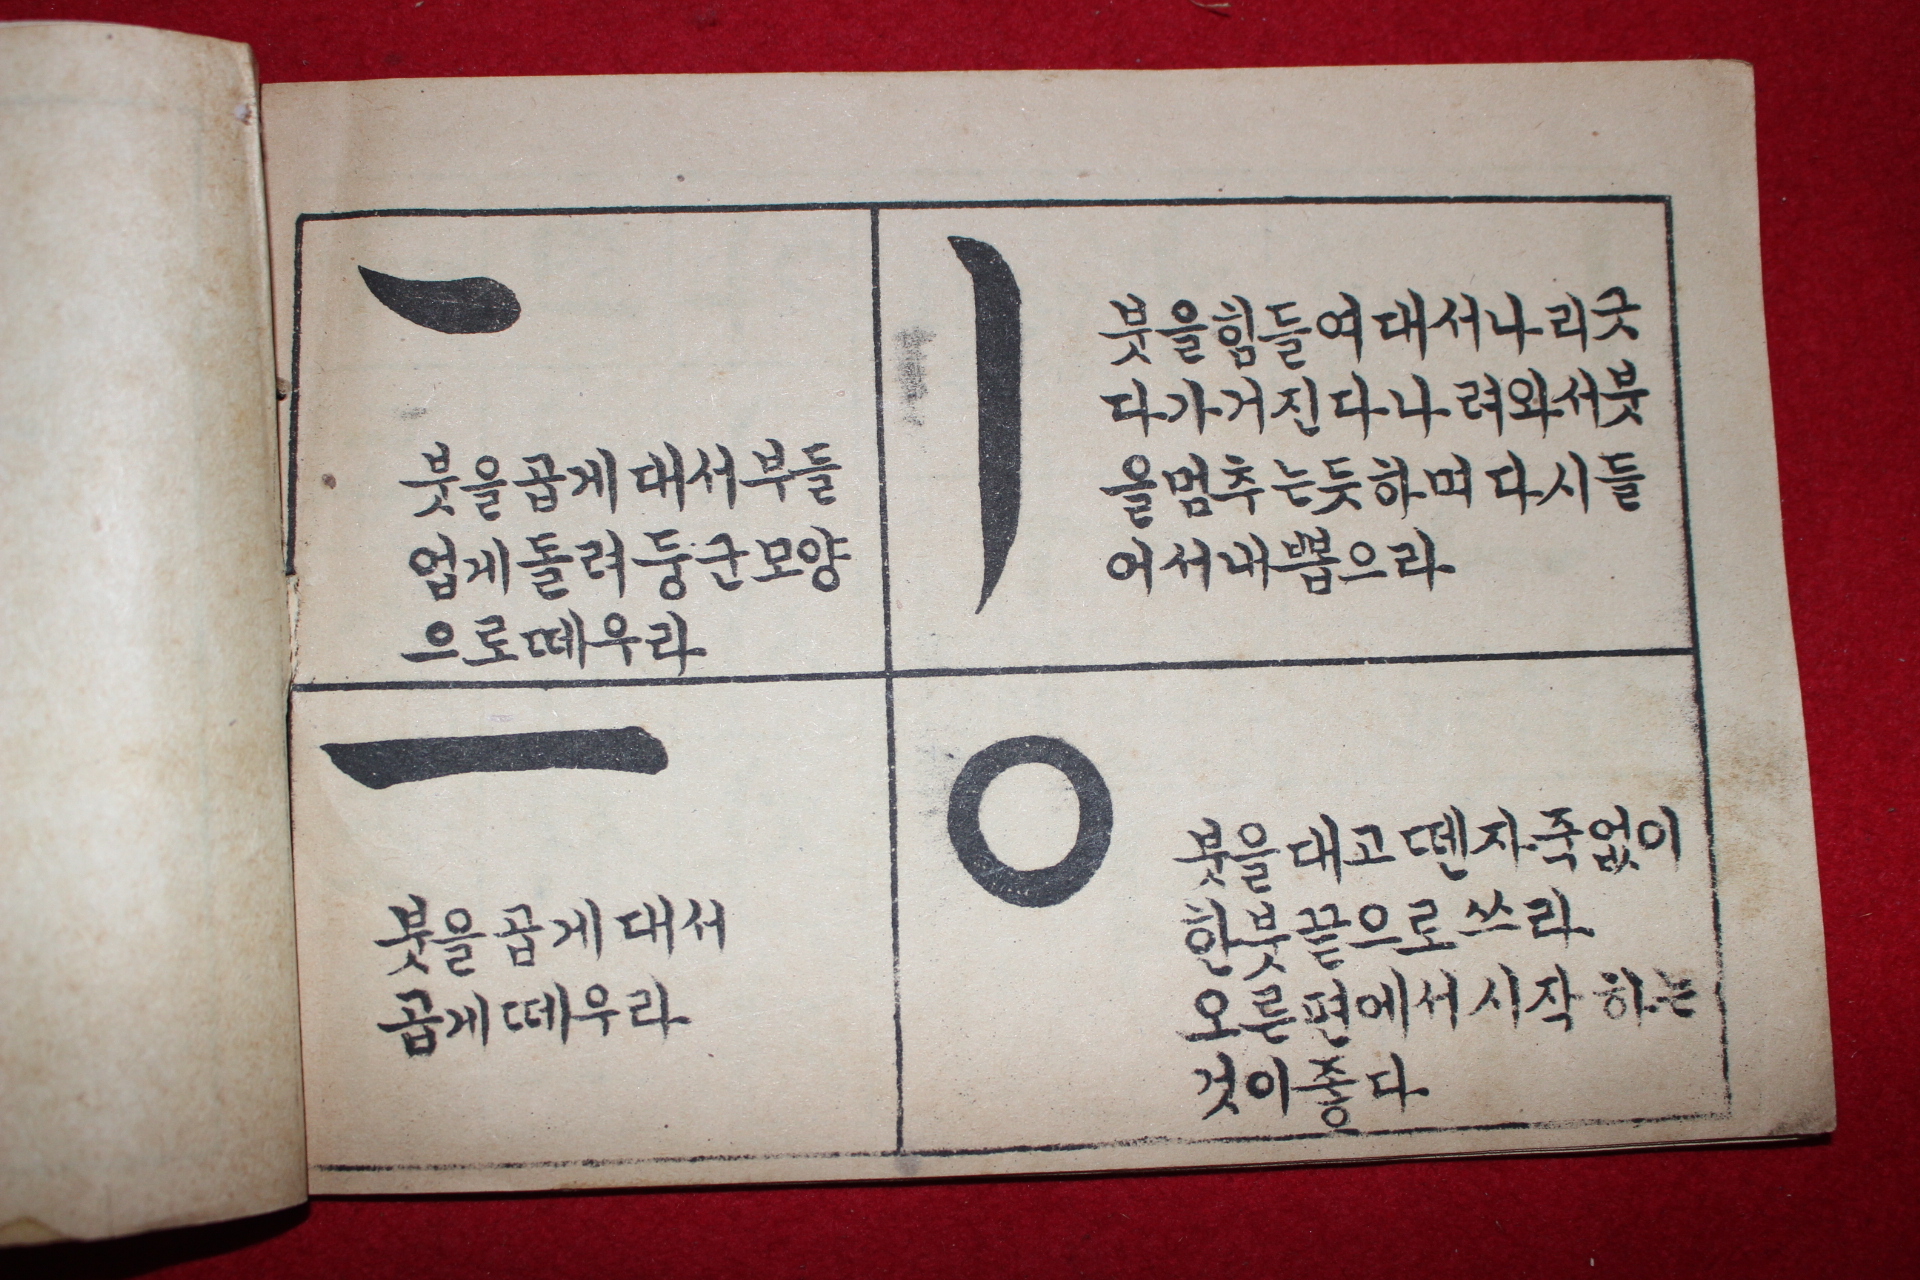 붓을곱게대서부들
업게돌려둥군모양
으로떼우라
붓을힘들여대서나리긋
다가거진다나려와서붓
을멈추는듯하며다시들
어서내뽑으라
붓을곱게대서
곱게떼우라
붓을대고뗀자죽없이
한붓끝으로쓰라
오른편에서시작하는
것이좋다